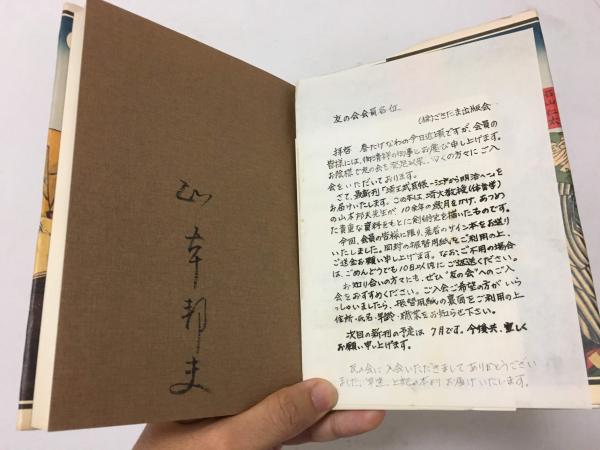 山本邦夫
友の会会員各位
(株)さきたま出版会
拝啓 春たけなわの今日近頃ですが、会員の
皆様には、御清祥の御事とお慶び申し上げます。
お陰様で友の会を発足以来、多くの方々にご入
会をいただいております。
さて、最新刊『埼玉武芸帳―江戸から明治へ―』を
お届けいたします。この本は、埼大教授(体育学)
の山本邦夫先生が10余年の歳月をかけ、あつめ
た貴重な資料をもとに剣術史を描いたものです。
今回、会員の皆様に限り、著者のサイン本をお送り
いたしました。同封の振替用紙をご利用の上、
ご送金お願い申し上げます。なお、ご不用の場合
は、ごめんどうでも10日以内にご返送ください。
お知り合いの方々にも、ぜひ"友の会"へのご入
会をおすすめください。ご入会ご希望の方がいら
っしゃいましたら、振替用紙の裏面をご利用の上
住所・氏名・年齢・職業をお知らせ下さい。
次回の新刊の予定は7月です。今後共、宜しく
お願い申し上げます。
友の会に入会いただきましてありがとうござい
ました。早速、上記の本をお届けいたします。